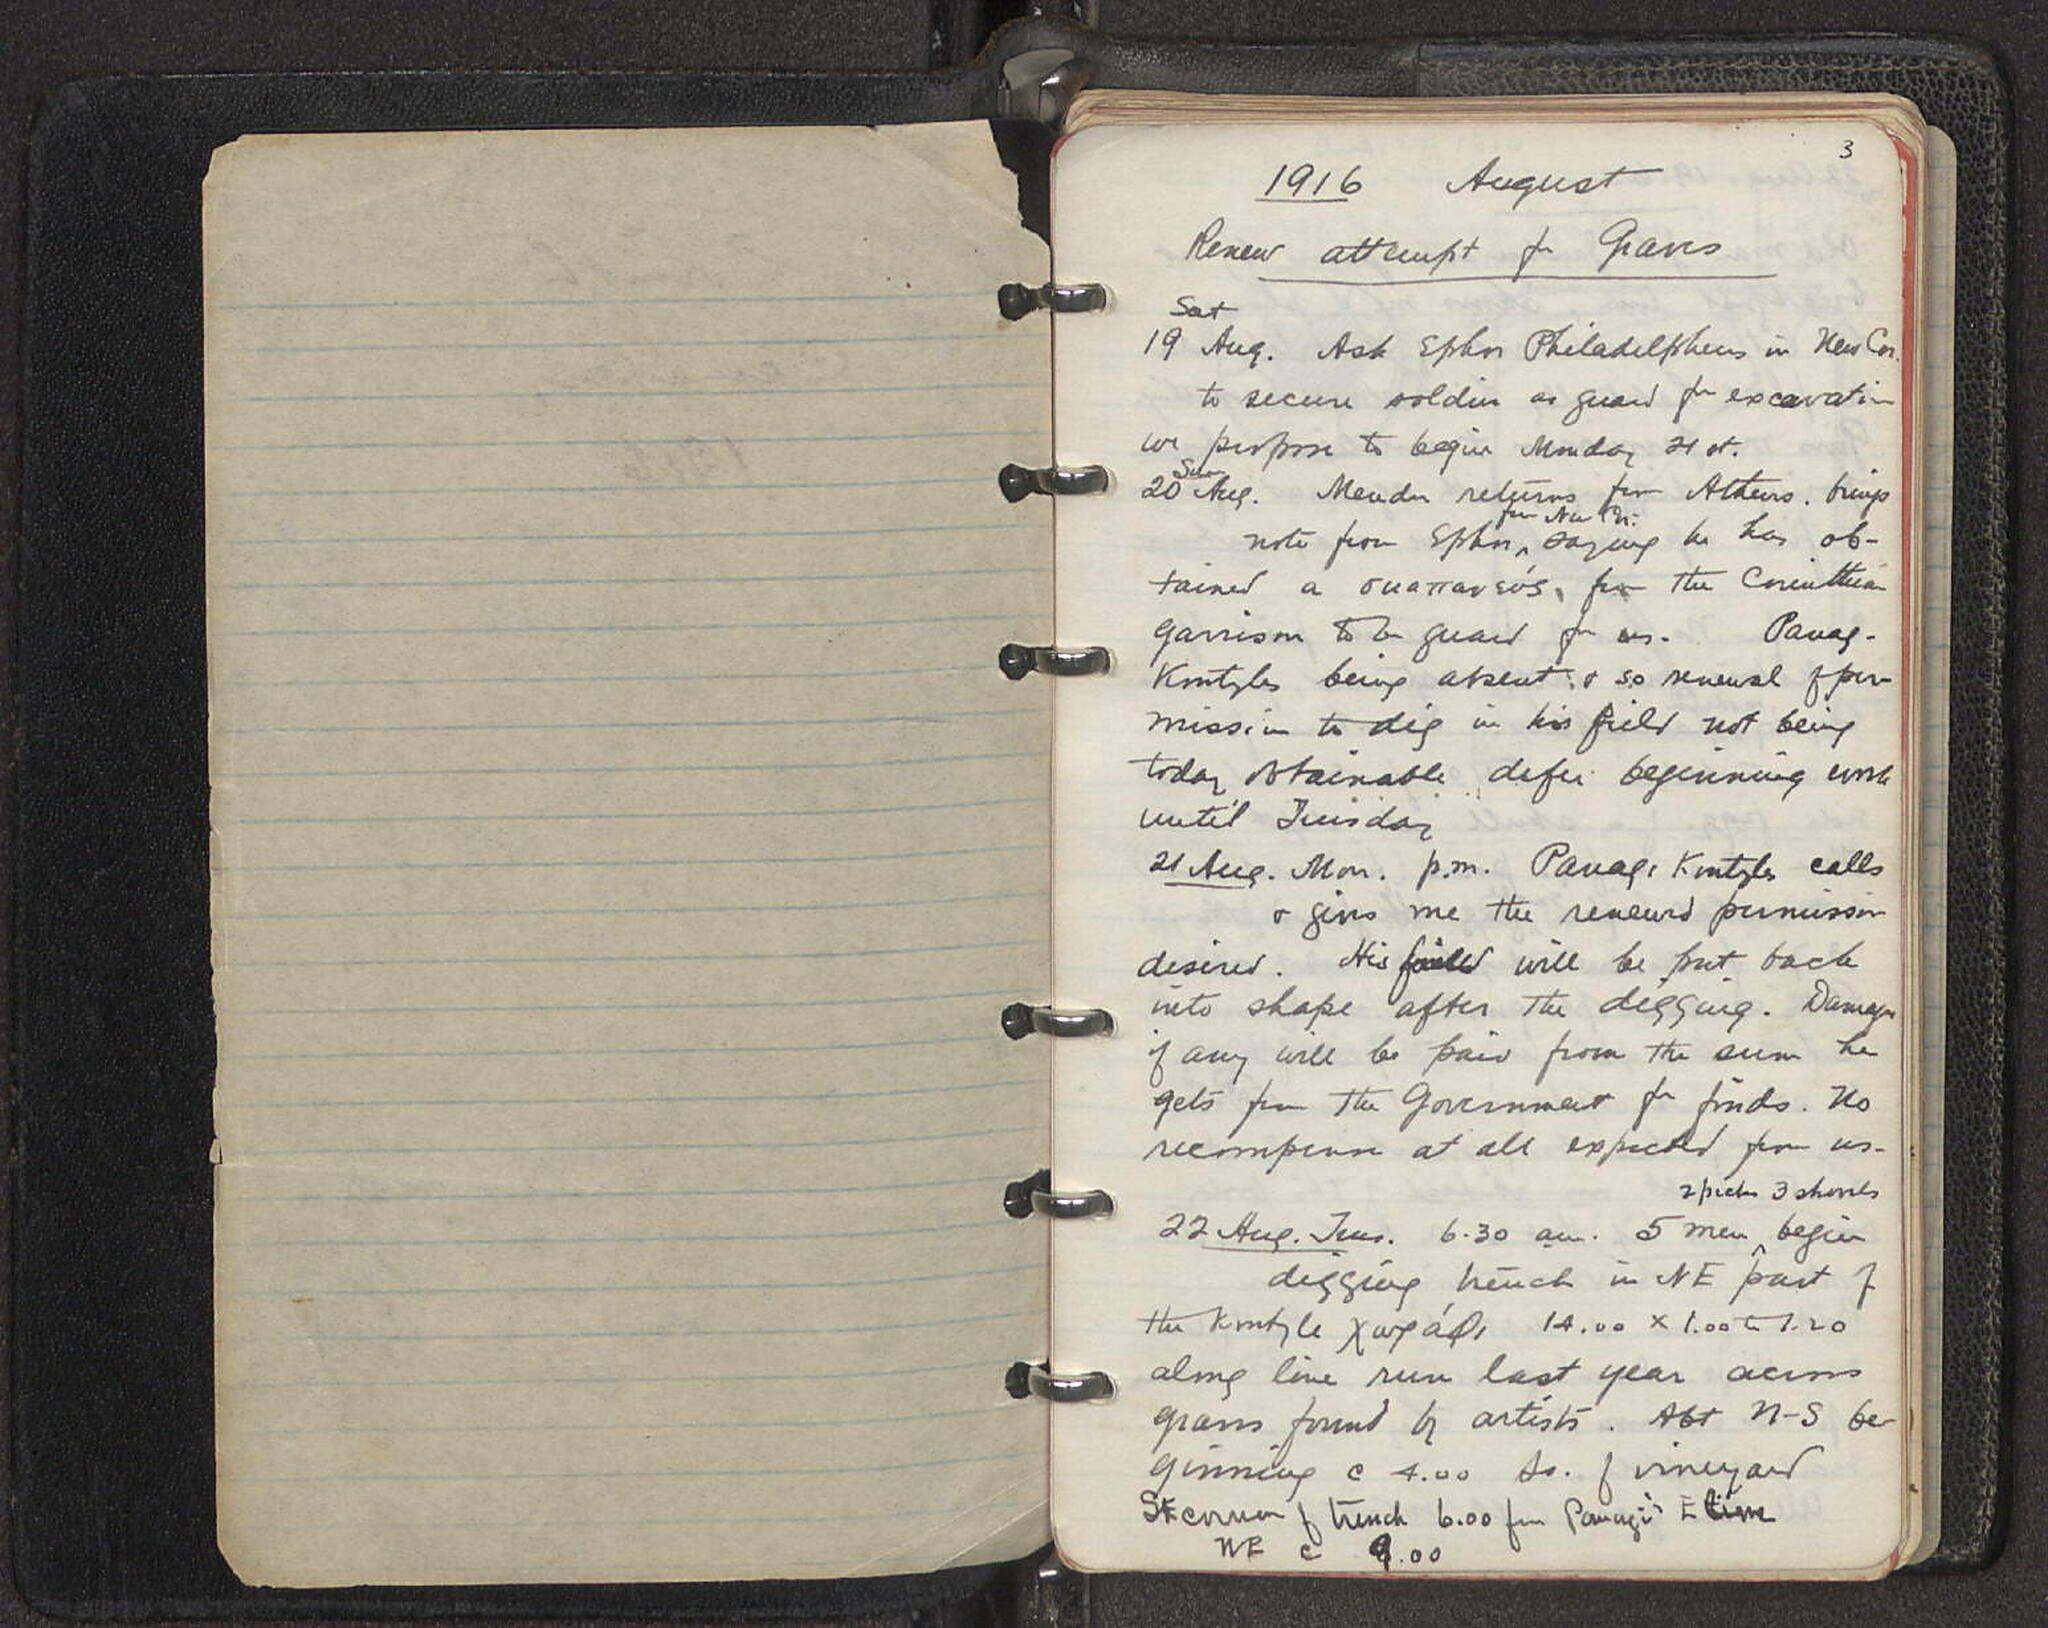 3
1916 August
Renew attempt for Graves
Sat
19 Aug. Ask Ephor Philadelpheus in New Cor.
to secure soldier as guard for excavation
we propose to begin Monday 21 st.
Sun
20 Aug. returns from Athens. brings
from New Cor.
note from Ephor, saying he has ob-
tained a σκαπανεύς, from the Corinthian
garrison to be guard for us. Panag.
Kontzles being absent & so renewal of per-
mission to dig in his field not being
today obtainable defer beginning work
until Tuesday
21 Aug. Mon. p.m. Panagi Kontzles calls
& gives me the renewed permission
desired. His field will be put back
into shape after the digging. Damages
if any will be paid from the sum he
gets from the Government for finds. No
recompense at all expected from us.
2 picks 3 shovels
22 Aug. Tues. 6.30 am. 5 men ^ begin
digging trench in NE part of
the Kontzle χωράφι 14.00 x 1.00 to 1.20
along line run last year across
graves found by artists. Abt N-S be-
ginning c 4.00 So. of vineyard
SE corner of trench 6.00 from Panagi's E line
NE c 9.00